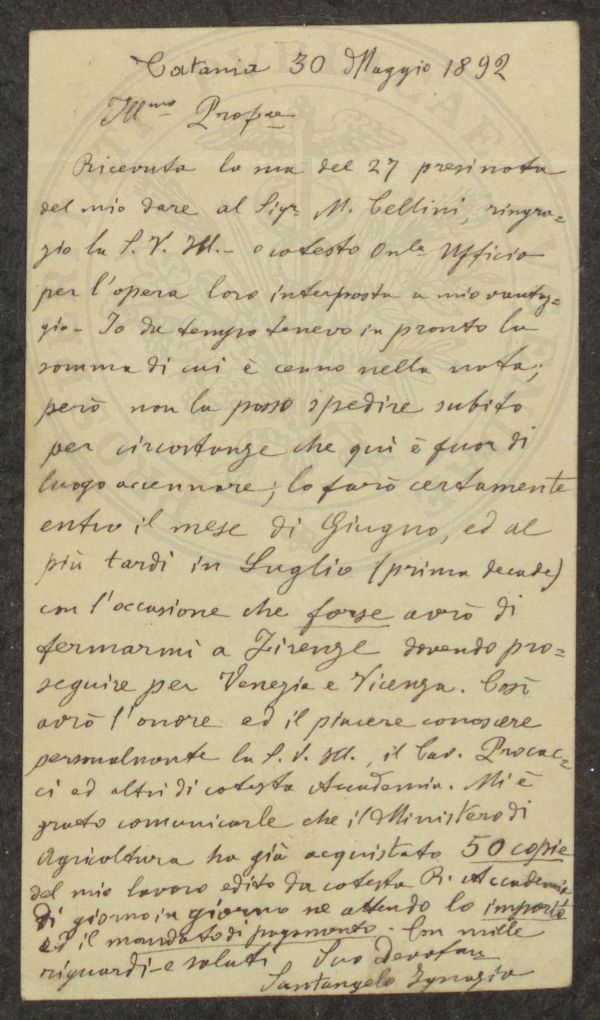 Catania 30 Maggio 1892
Ill.mo Prof.re
Ricevuta la sua del 27 presi nota
del mio dare al Sigr. M. Cellini, ringra=
zio la S. V. Ill. e cotesto Onle Ufficio
per l'opera loro interposta a mio vantag=
gio. Io da tempo tenevo in pronto la
somma di cui è cenno nella nota;
però non la posso spedire subito
per circostanze che qui è fuor di
luogo accennare; lo farò certamente
entro il mese di Giugno, ed al
più tardi in Luglio (prima decade)
con l'occasione che forse avrò di
fermarmi a Firenze dovendo pro=
seguire per Venezia e Vicenza. Così
avrò l'onore ed il piacere conoscere
personalmente la S. V. Ill., il Cav. Procac=
ci ed altri di cotesta Accademia. Mi è
grato comunicarle che il Ministero di
Agricoltura ha già acquistato 50 copie
del mio lavoro edito da cotesta R. Accademia
di giorno in giorno ne attendo lo importo
ed il mandato di pagamento. Con mille
riguardi e saluti Suo Devotsmo
Santangelo Ignazio